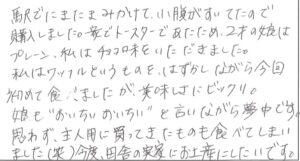 駅でたまたまみかけて、小腹がすいてたので
購入しました。家でトースターであたため、2才の娘は
プレーン、私はチョコ味をいただきました。
私はワッフルというものを、はずかしながら今回
初めて食べましたが、美味しさにビックリ。
娘も"おいちぃおいちぃ"と言いながら夢中です。
思わず、主人用に買ってきたものも食べてしまい
ました(笑)今度、田舎の実家にお土産にしたいです。